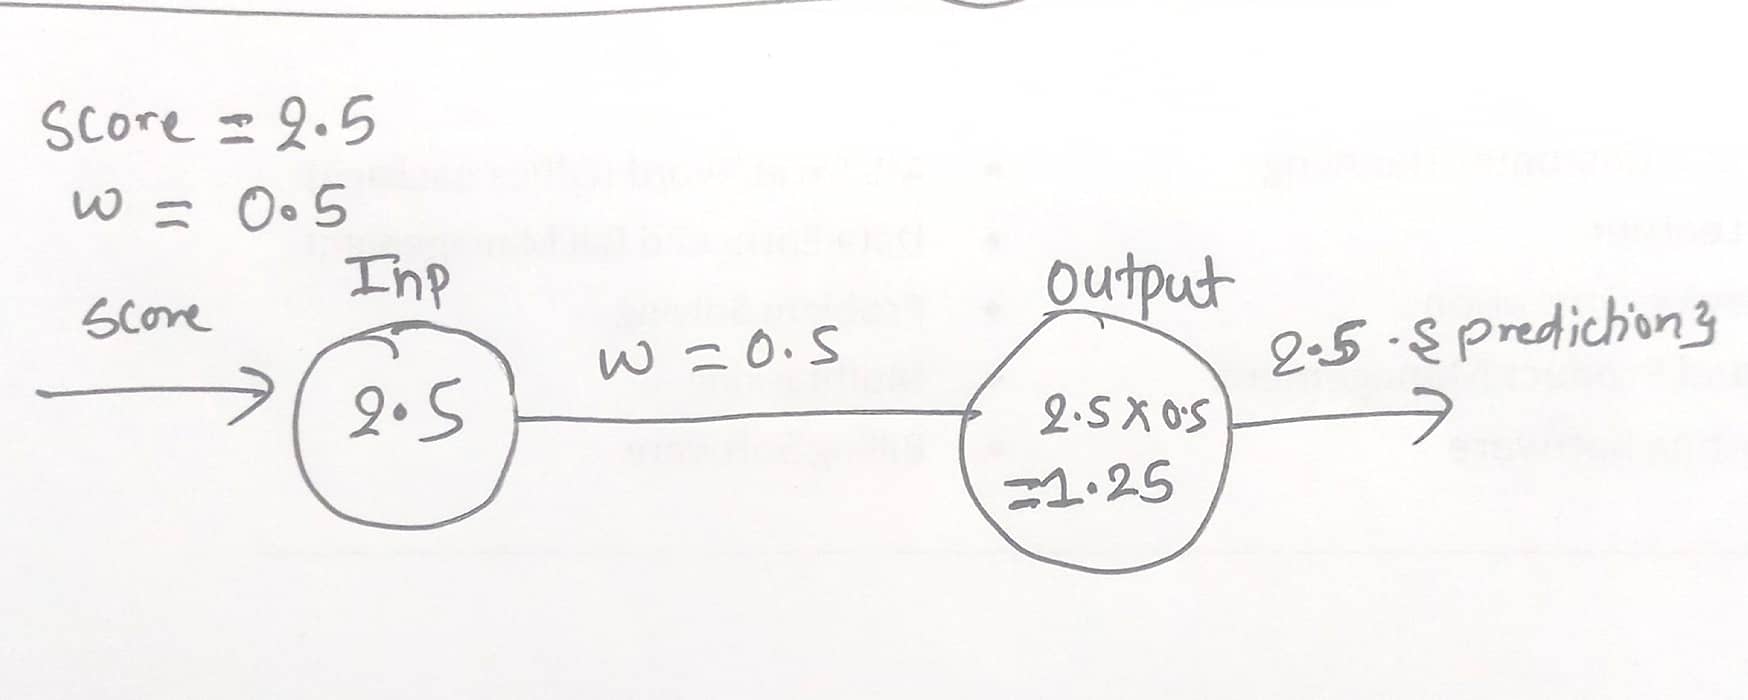 Score = 2.5
w = 0.5
Inp
Score
2.5
w = 0.5
output
2.5 x 0.5
=1.25
2.5 . { prediction }